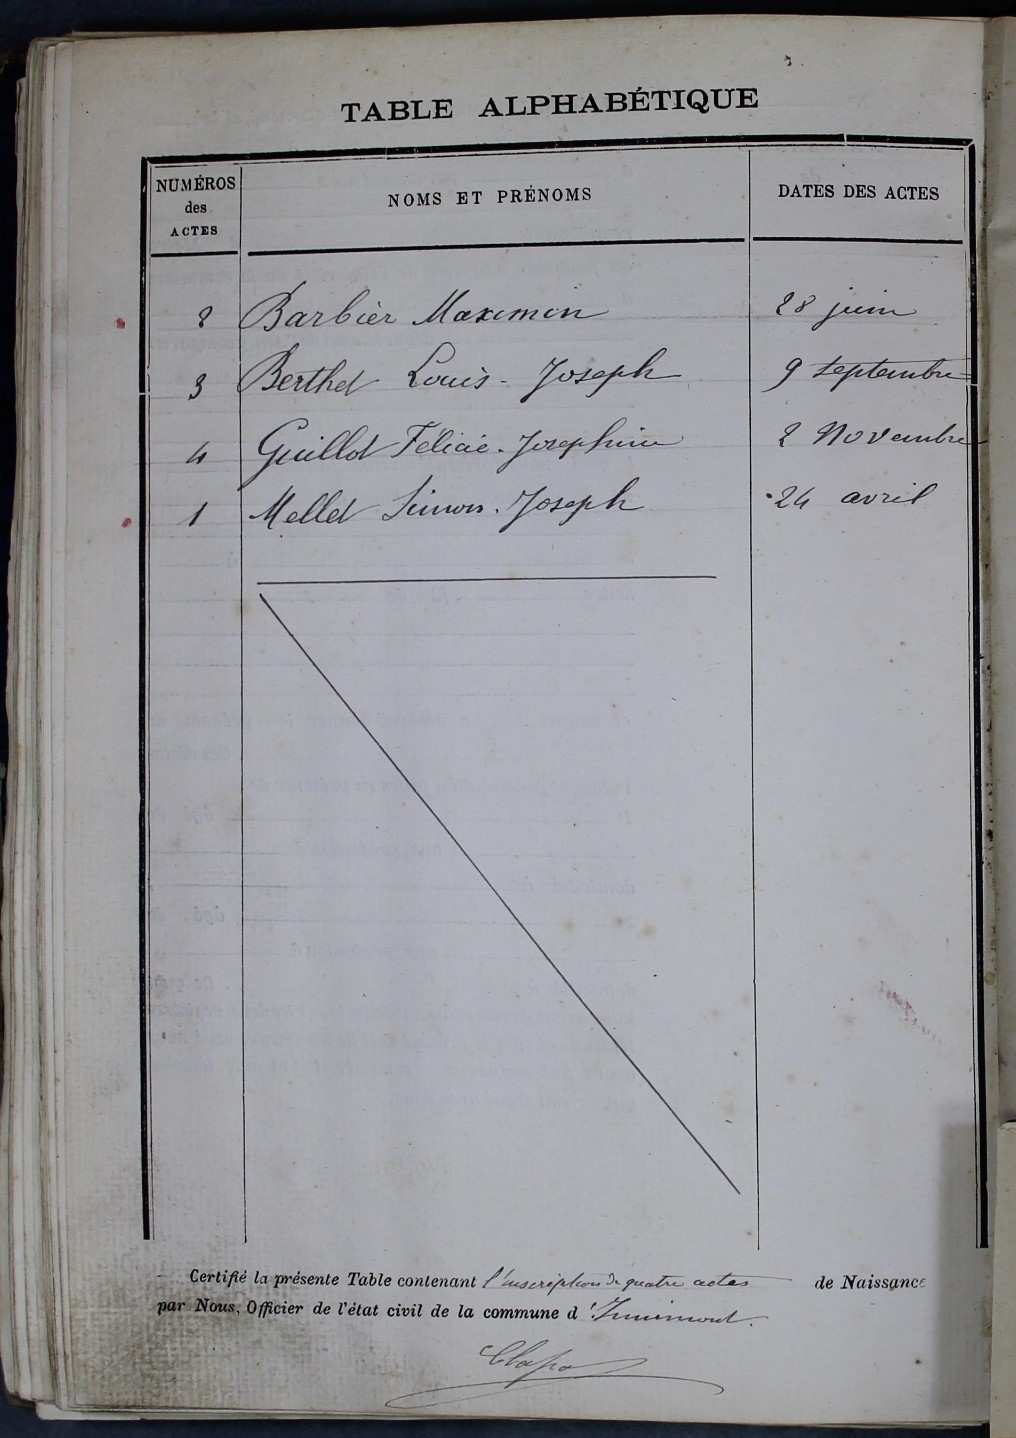 TABLE ALPHABÉTIQUE
NUMÉROS des ACTES NOMS ET PRÉNOMS DATES DES ACTES
2 Barbier Maximin 28 juin
3 Berthet Louis-Joseph 9 septembre
4 Guillot Félicie-Josephine 2 Novembre
1 Mellet Simon-Joseph 24 avril
Certifié la présente Table contenant l'inscription de quatre actes de Naissance
par Nous, Officier de l'état civil de la commune d'Innimont.